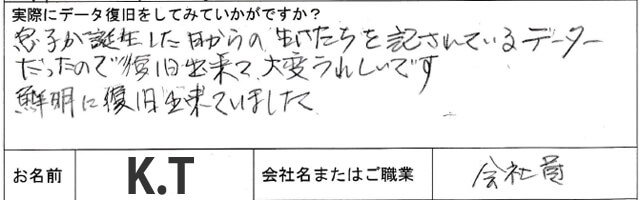 実際にデータ復旧をしてみていかがですか？
息子が誕生した日からの生いたちを記されているデーター
だったので復旧出来て大変うれしいです
鮮明に復旧出来ていました
お名前 K.T 会社名またはご職業 会社員